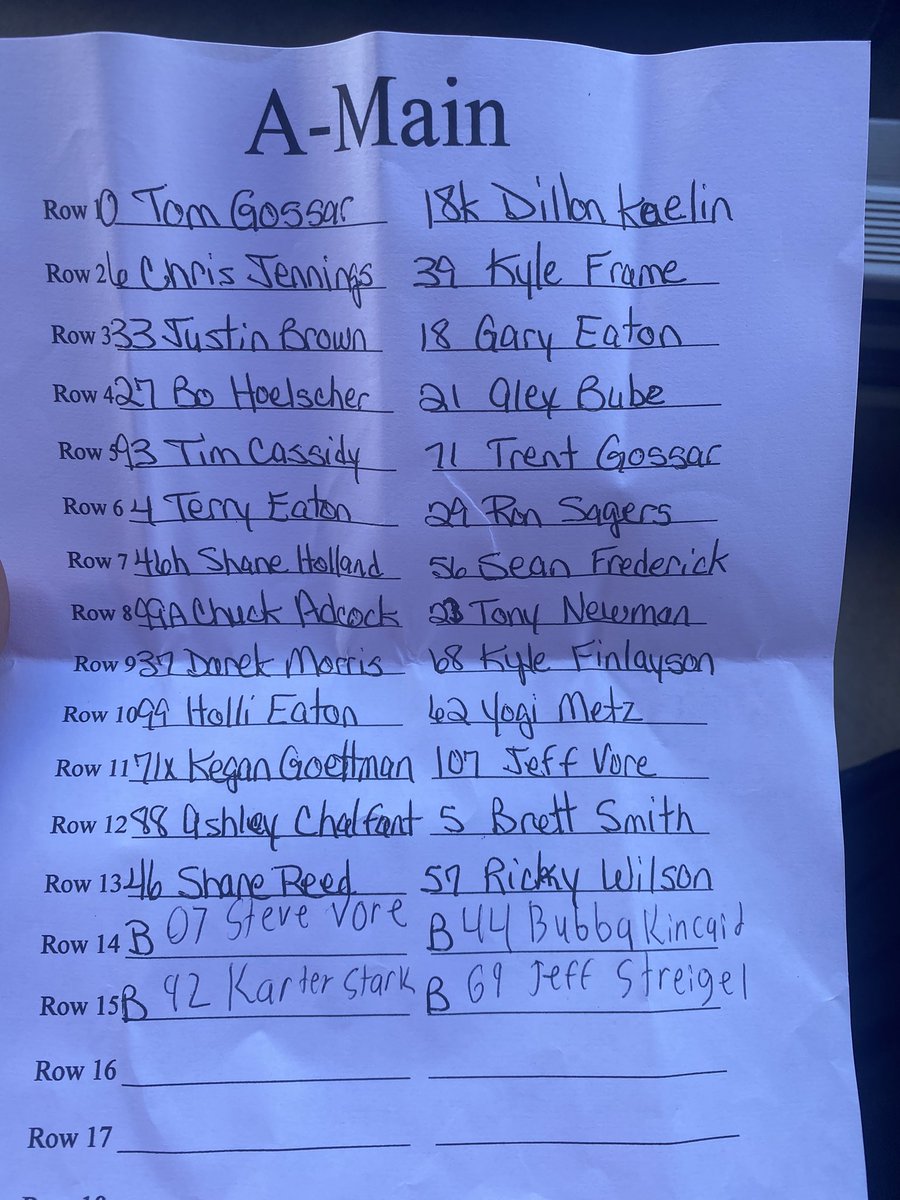 A-Main
Row 10 Tom Gossar 18k Dillon Kaelin
Row 2 6 Chris Jennings 39 Kyle Frame
Row 3 33 Justin Brown 18 Gary Eaton
Row 4 27 Bo Hoelscher 21 Alex Bube
Row 5 93 Tim Cassidy 71 Trent Gossar
Row 6 4 Terry Eaton 29 Ron Sagers
Row 7 46h Shane Holland 56 Sean Frederick
Row 8 99A Chuck Adcock Tony Newman
Row 9 37 Derek Morris 68 Kyle Finlayson
Row 10 99 Holli Eaton 62 Yogi Metz
Row 11 71x Kegan Goettman 107 Jeff Vore
Row 12 88 Ashley Chalfant 5 Brett Smith
Row 13 46 Shane Reed 57 Ricky Wilson
Row 14 B 07 Steve Vore B 44 Bubba Kincaid
Row 15 B 92 Karter Stark B 69 Jeff Streigel
Row 16
Row 17